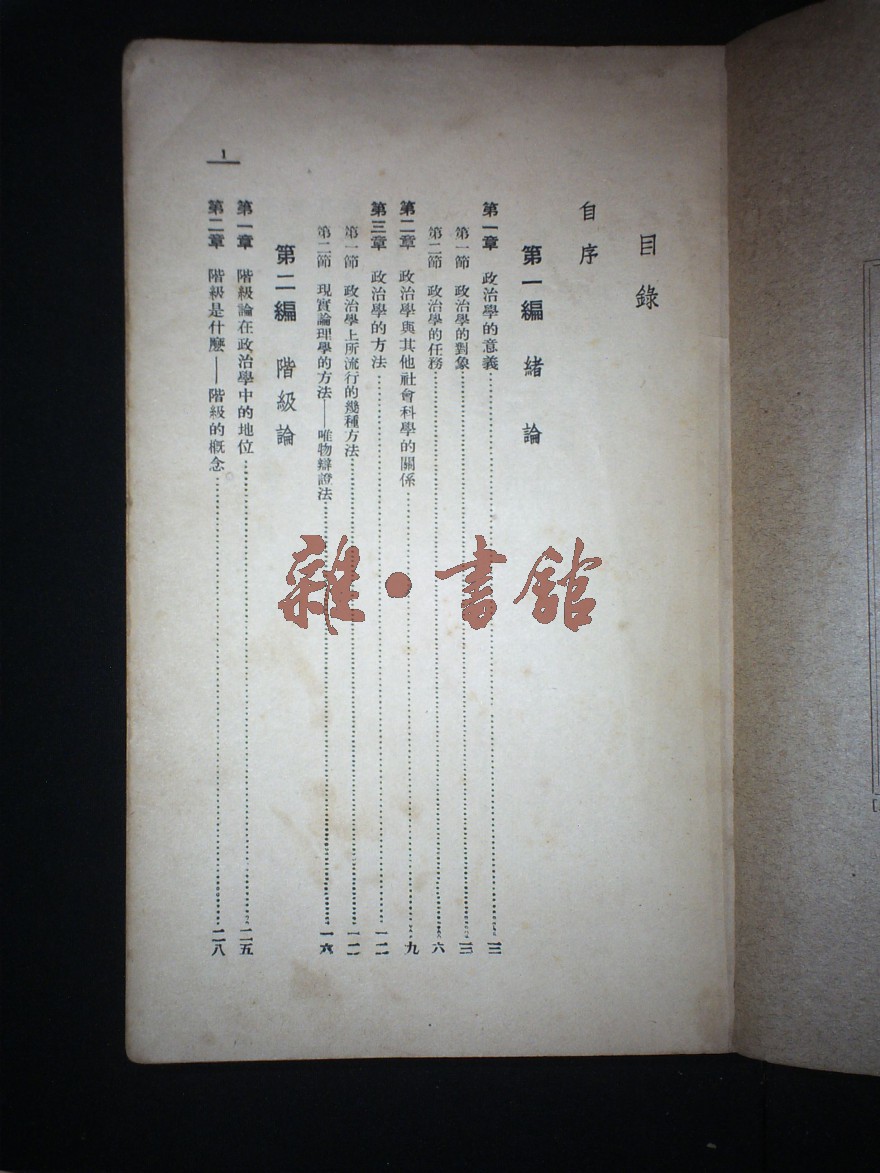 目錄
自序
第一編 緒論
第一章 政治學的意義……三
第一節 政治學的對象……三
第二節 政治學的任務……六
第二章 政治學與其他社會科學的關係……九
第三章 政治學的方法……一二
第一節 政治學上所流行的幾種方法……一二
第二節 現實論理學的方法——唯物辯證法……一六
第二編 階級論
第一章 階級論在政治學中的地位……二五
第二章 階級是什麼——階級的概念……二八
1
雜·書館